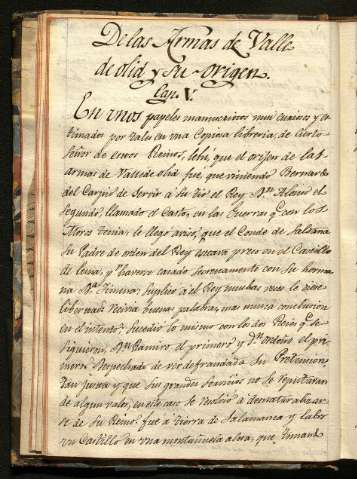 De las Armas de Valle
de olid y su origen.
Cap. V.
En unos papeles manuscritos mui curiosos y es
timados por tales en una Copiosa libreria, de cierto
señor de estos Reinos, lehi, que el origen de las
armas de Vallede olid fue que viniendo Bernardo
del Carpio de servir a su tio el Rey Dn. Alonso el
segundo, llamado el Casto, en las Guerras qe. con los
Moros tenia le llego aviso, que el Conde de Saldaña
su Padre de orden del Rey estava preso en el Castillo
de Luna, y haverse casado secretamente con su herma
na Da. Ximena, suplico a el Rey muchas veces le diese
libertad tenia buenas palabras, mas nunca conclusion
en el intento. sucedio lo mismo con los dos Reies qe. se
siguieron, Dn. Ramiro el primero y Dn. Ordoño el pri
mero. despechado de ver defraudada su Pretension
tan justa y que sus grandes servicios no se reputaran
de algun valor, en este caso se resolvio a desnaturalizar
se de su Reino. fue a tierra de Salamanca y labro
un Castillo en una montañuela alta, que llamaro